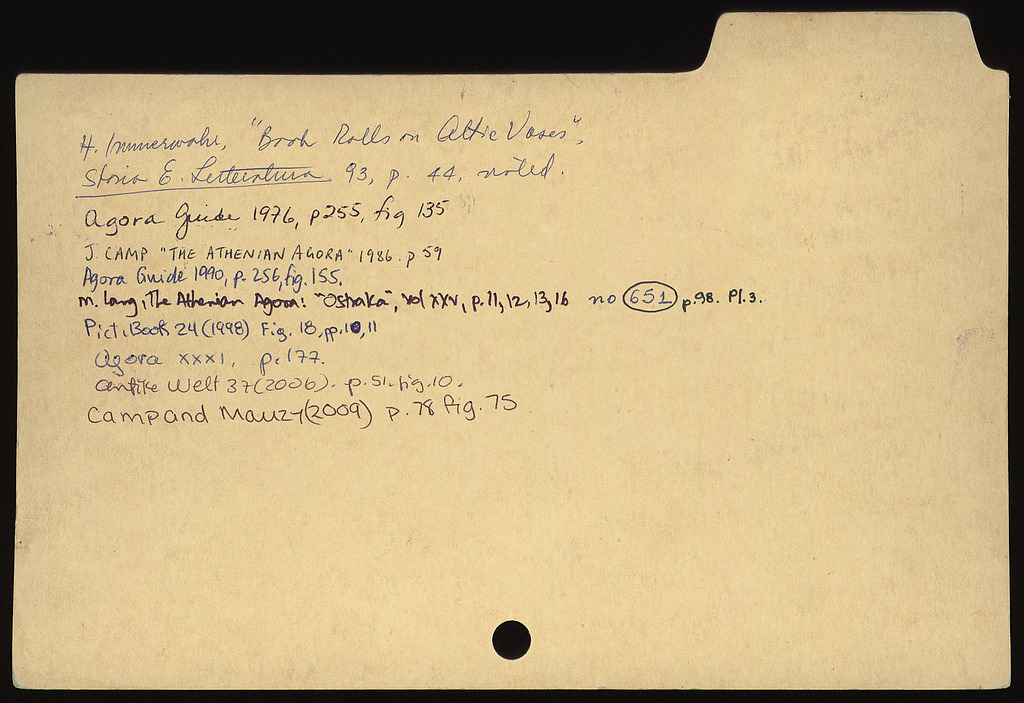 H. Immerwahr, "Book Rolls on Attic Vases",
Storia E. Letteratura 93, p. 44, noted.
Agora Guide 1976, p255, fig 135
J. CAMP "THE ATHENIAN AGORA" 1986. p 59
Agora Guide 1990, p. 256, fig. 155.
M. Lang, The Athenian Agora: "Ostraka", vol XXV, p. 11, 12, 13, 16 no 651 p.98. Pl. 3.
Pict. Book 24 (1998) Fig. 18, pp. 10, 11
Agora XXXI, p. 177.
Antike Welt 37 (2006). p. 51. fig. 10.
Camp and Mauzy (2009) p. 78 fig. 75